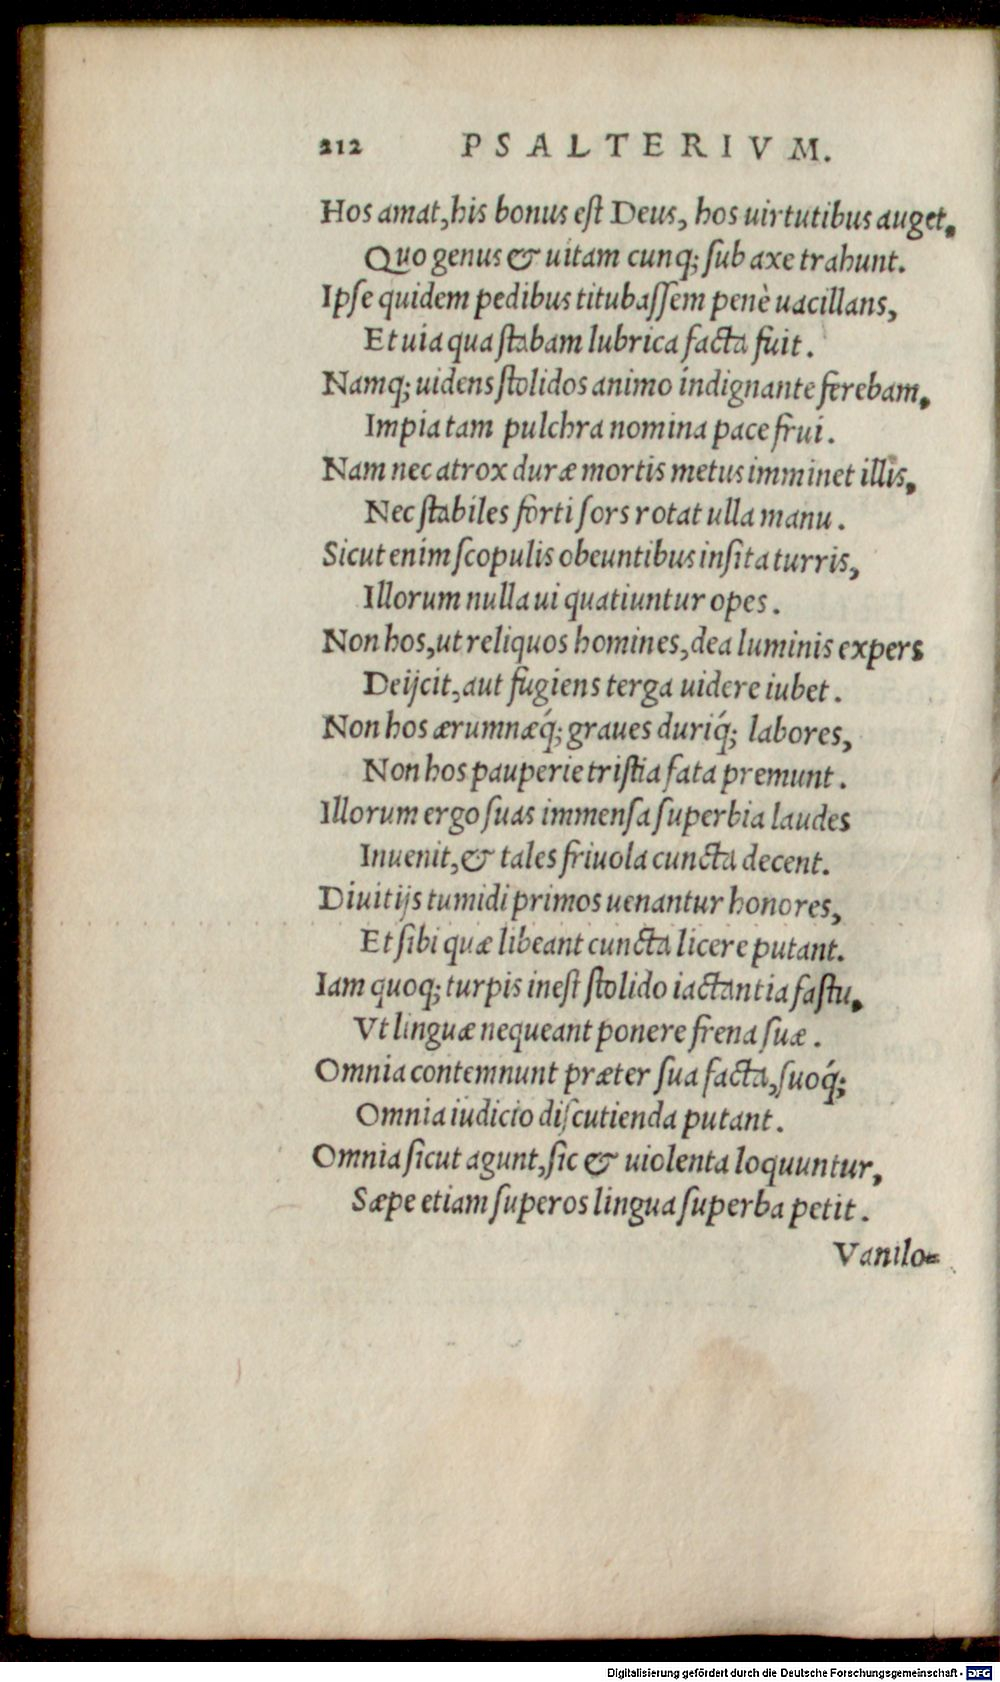 212 PSALTERIVM.
Hos amat, his bonus eſt Deus, hos uirtutibus auget,
Quo genus & uitam cunq; ſub axe trahunt.
Ipſe quidem pedibus titubaſſem penè uacillans,
Et uia qua ſtabam lubrica facta fuit.
Namq; uidens ſtolidos animo indignante ferebam,
Impia tam pulchra nomina pace frui.
Nam nec atrox duræ mortis metus imminet illis,
Nec ſtabiles forti ſors rotat ulla manu.
Sicut enim ſcopulis obeuntibus inſita turris,
Illorum nulla ui quatiuntur opes.
Non hos, ut reliquos homines, dea luminis expers
Deijcit, aut fugiens terga uidere iubet.
Non hos ærumnæq́; graues duriq́; labores,
Non hos pauperie triſtia fata premunt.
Illorum ergo ſuas immenſa ſuperbia laudes
Inuenit, & tales friuola cuncta decent.
Diuitijs tumidi primos uenantur honores,
Et ſibi quæ libeant cuncta licere putant.
Iam quoq; turpis ineſt ſtolido iactantia faſtu,
Vt linguæ nequeant ponere frena ſuæ.
Omnia contemnunt præter ſua facta, ſuoq́;
Omnia iudicio diſcutienda putant.
Omnia ſicut agunt, ſic & uiolenta loquuntur,
Sæpe etiam ſuperos lingua ſuperba petit.
Vanilo=
Digitalisierung gefördert durch die Deutsche Forschungsgemeinschaft - DFG